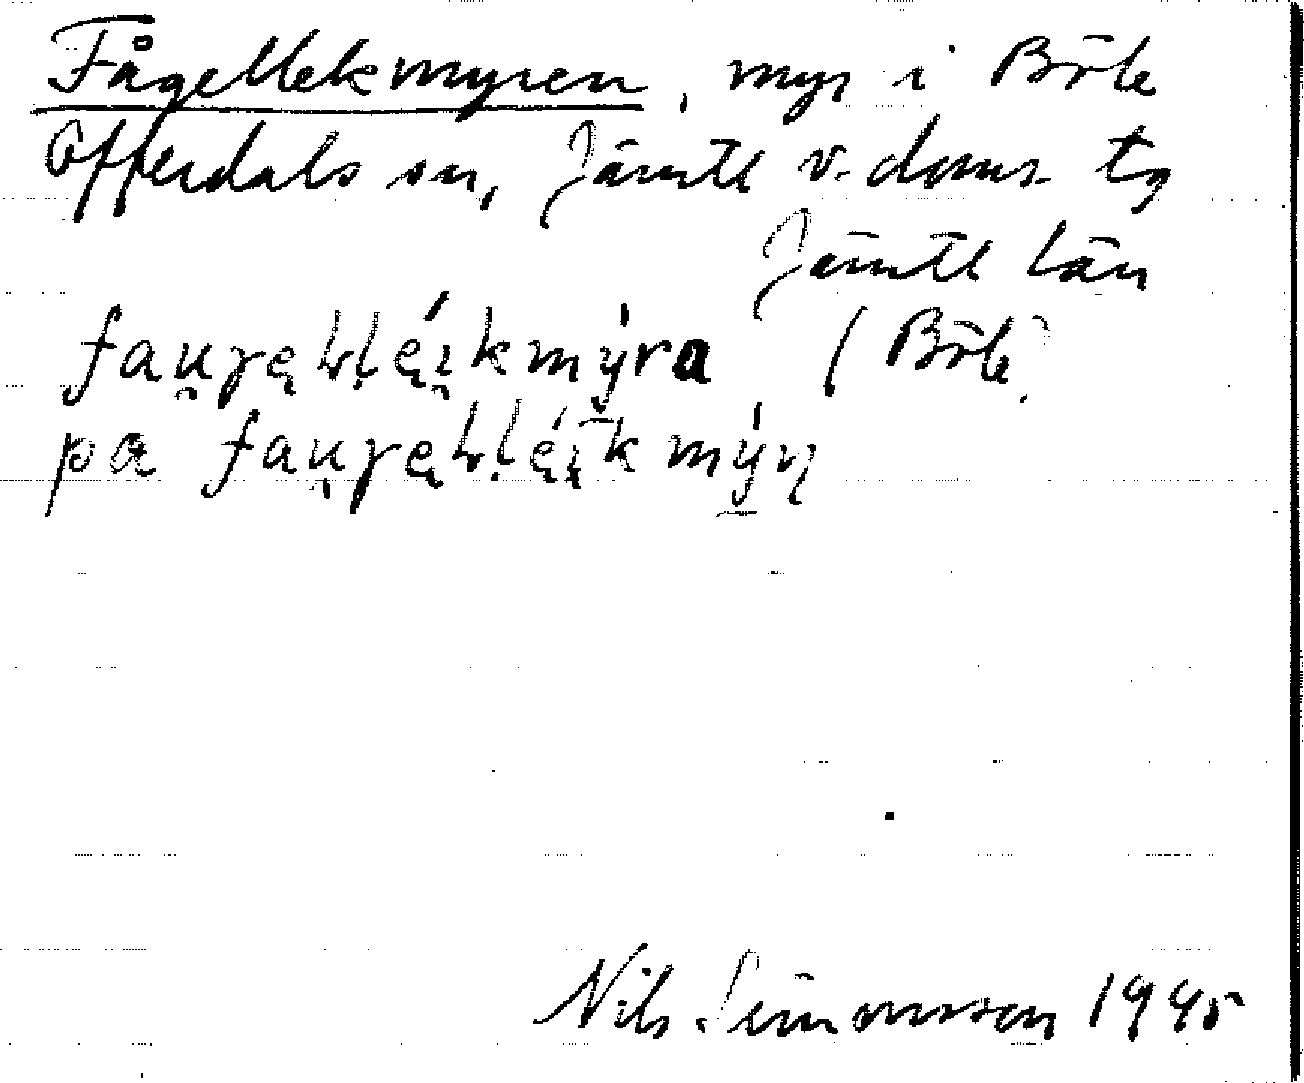 Fågellekmyren, myr i Böle
Offerdals sn, Jämtl v. doms. tg
Jämtl län
fau̯ɣęłḷę́i̯kmýra (Böle)
pa fau̯ɣęłḷę́i̯kmýṇ
Nils Simonsson 1945